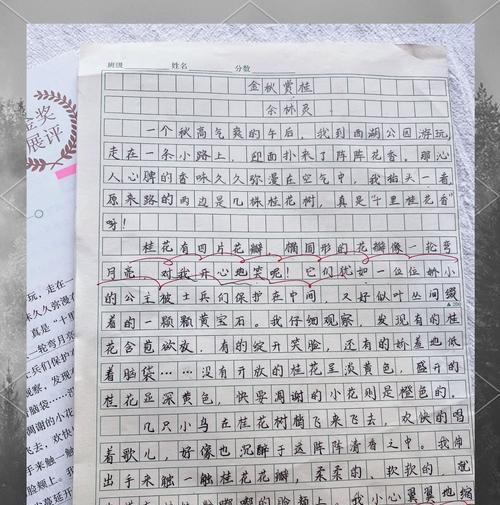 金奖
展评
班级 姓名 分数
金秋赏桂
余林灵
一个秋高气爽的午后，我到西湖公园游玩，
走在一条小路上，迎面扑来了阵阵花香。那沁
人心脾的香味久久弥漫在空气中，我抬头一看，
原来路的两边是几株桂花树，真是“十里桂花香”
呀！
桂花有四片花瓣，椭圆形的花瓣像一轮弯
月亮，对我开心地笑呢！它们犹如一位位娇小
的公主被士兵们保护在中间，又好似叶丛间缀
着的一颗颗黄宝石。我仔细观察，发现有的桂
花含苞欲放，有的绽开笑脸，还有的娇羞地低
着脑袋……没有开放的桂花呈淡黄色，盛开的
桂花呈深黄色，快要凋谢的小花则是橙色的。
几只小鸟在桂花树梢飞来飞去，欢快的唱
着歌儿，好像也沉醉于这阵阵清香之中。我伸
出手来触一触桂花花瓣，柔柔的、软软的，就
的脸颊上。我小心翼翼地缩
玩，走在一
味久久弥
真是“十
一轮弯月亮
兵们保护
观察，发现
脑袋……
凋谢的小花
飞去，欢快
手来触一触
脸颊上。我